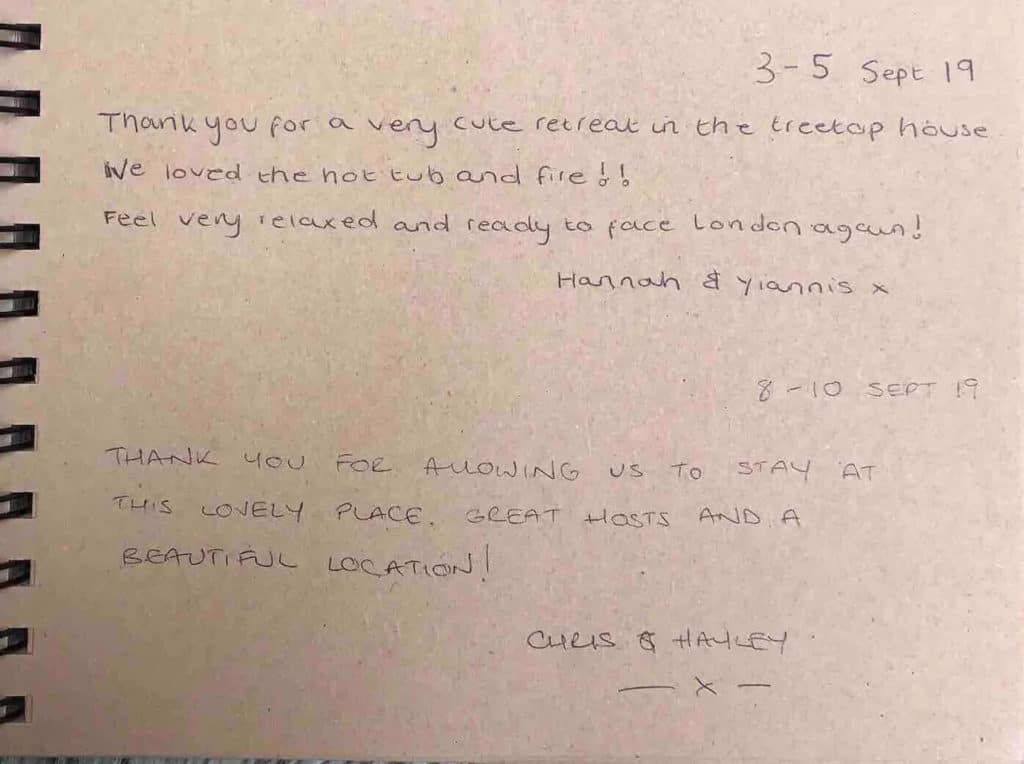 3-5 Sept 19
Thank you for a very cute retreat in the treetop house
We loved the hot tub and fire!!
Feel very relaxed and ready to face London again!
Hannah & Yiannis x
8-10 SEPT 19
THANK YOU FOR ALLOWING US TO STAY AT
THIS LOVELY PLACE. GREAT HOSTS AND A
BEAUTIFUL LOCATION!
CHRIS & HAYLEY
— x —